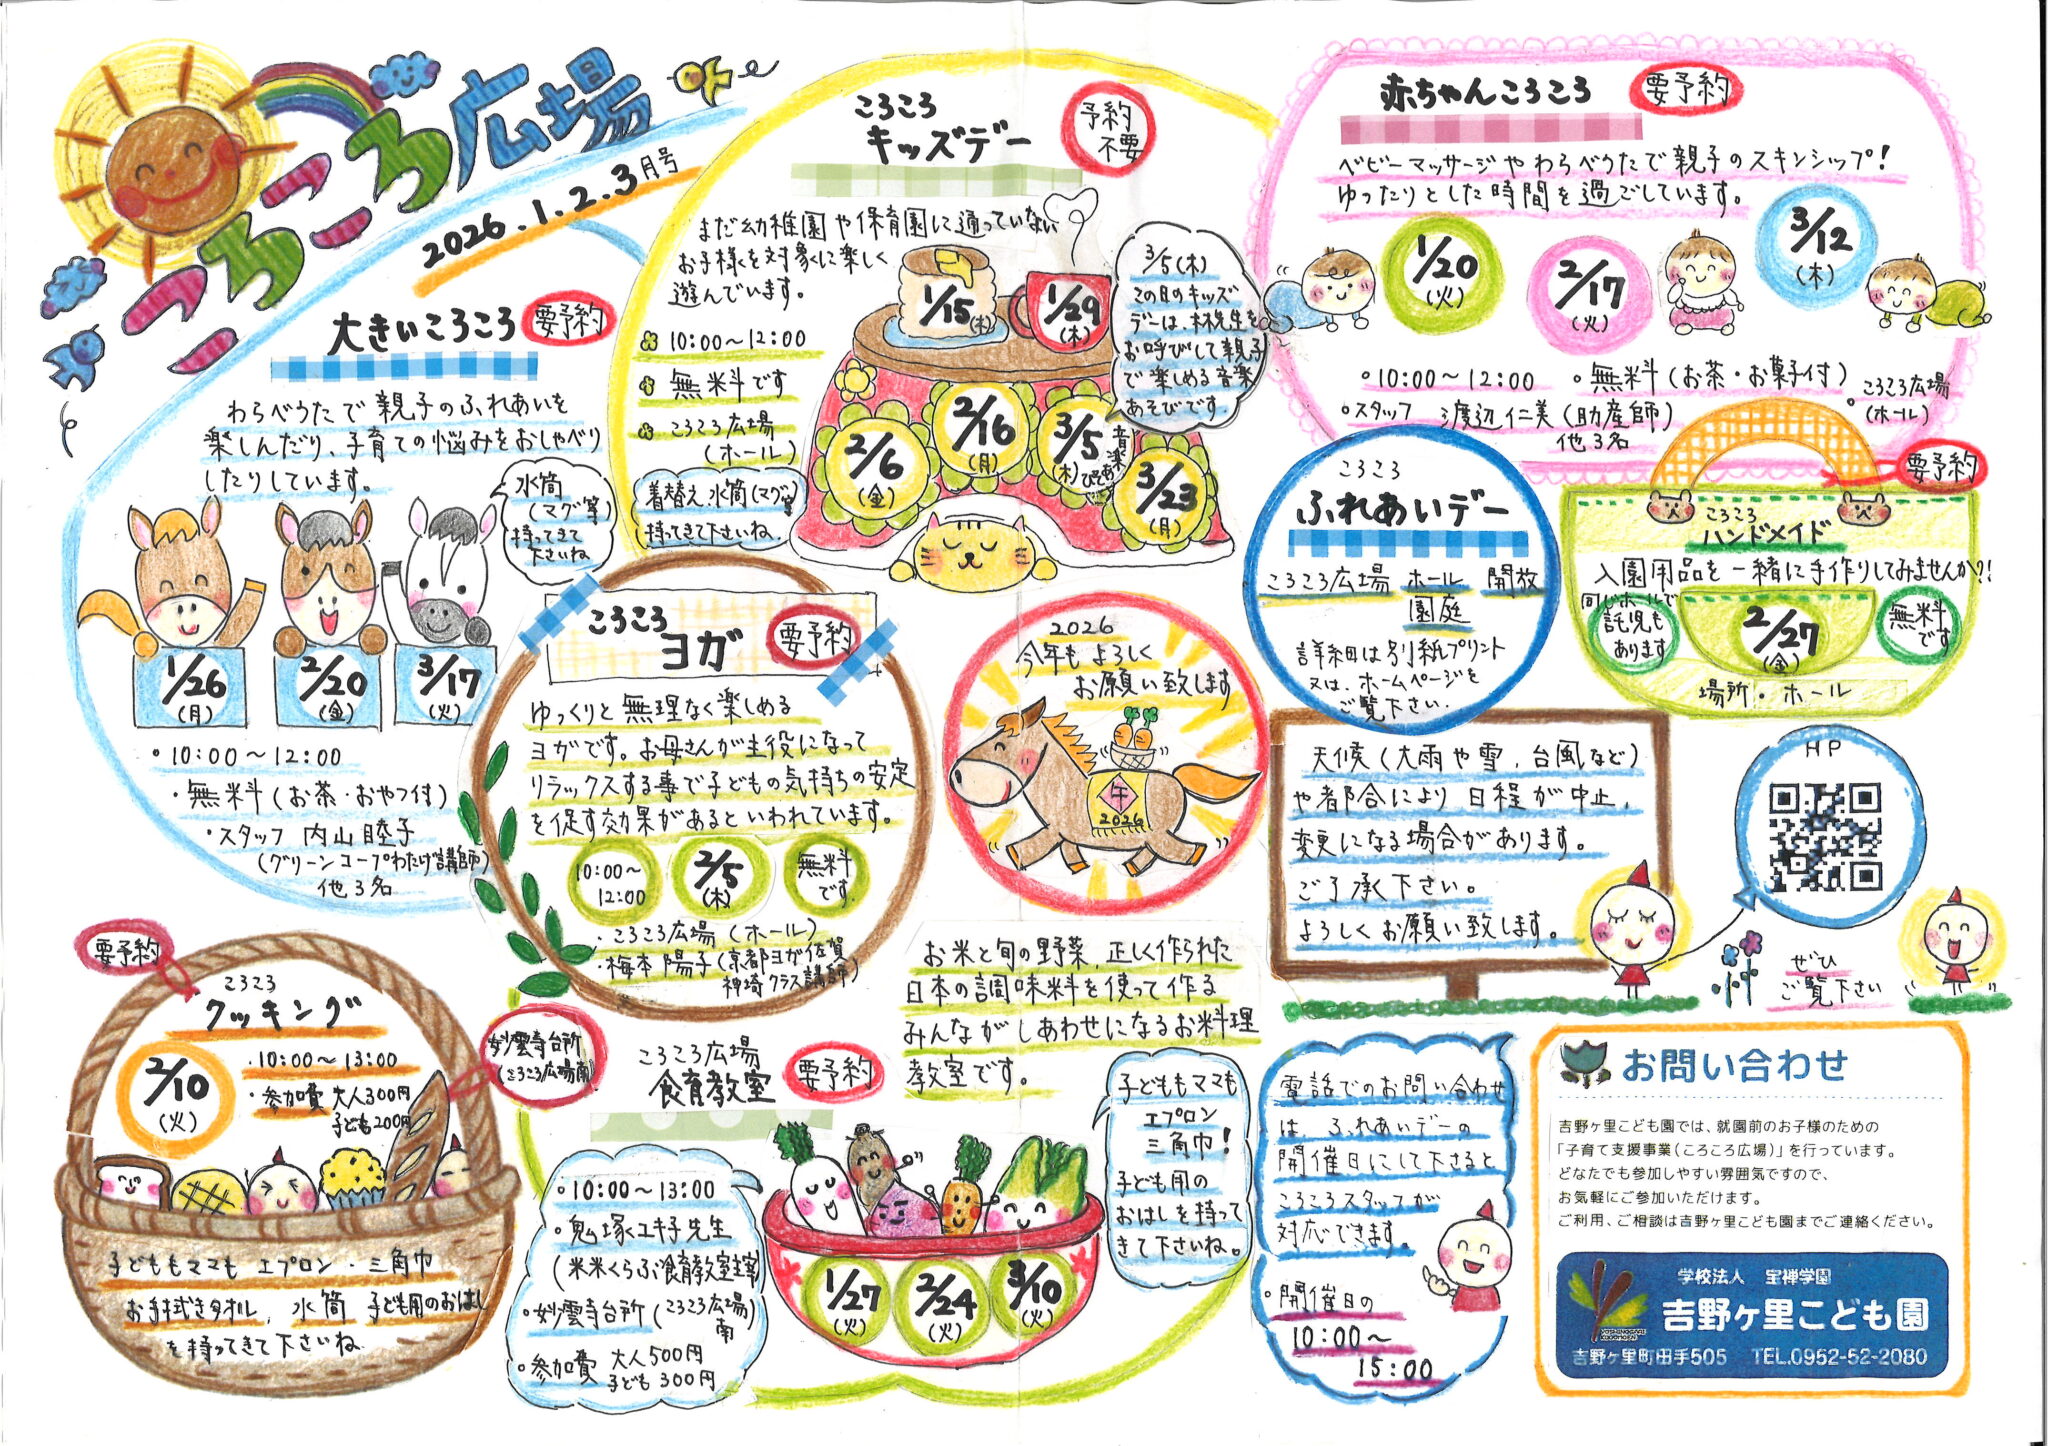 ころころ広場
2026.1.2.3月号
大きいころころ
要予約
わらべうたで親子のふれあいを
楽しんだり、子育ての悩みをおしゃべり
したりしています。
水筒
(マグ等)
持ってきて
下さいね
1/26
(月)
2/20
(金)
3/17
(火)
・10:00～12:00
・無料(お茶・おやつ付)
・スタッフ 内山睦子
(グリーンコープわたげ講師)
他3名
ころころ
キッズデー
予約
不要
まだ幼稚園や保育園に通っていない
お子様を対象に楽しく
遊んでいます。
10:00～12:00
無料です
ころころ広場
(ホール)
着替え、水筒(マグ)等
持ってきて下さいね。
1/15
(木)
1/29
(木)
2/6
(金)
2/16
(月)
3/5
(木)
音楽あそび
3/23
(月)
3/5(木)
この日のキッズ
デーは、林先生を
お呼びして親子
で楽しめる音楽
あそびです。
赤ちゃんころころ
要予約
ベビーマッサージやわらべうたで親子のスキンシップ!
ゆったりとした時間を過ごしています。
1/20
(火)
2/17
(火)
3/12
(木)
・10:00～12:00 ・無料(お茶・お菓子付)
・スタッフ 渡辺仁美(助産師)
他3名
・ころころ広場
(ホール)
ころころ
ふれあいデー
ころころ広場 ホール 開放
園庭
詳細は別紙プリント
又は、ホームページを
ご覧下さい.
要予約
ころころ
ハンドメイド
入園用品を一緒に手作りしてみませんか?!
同じホールで
託児も
あります
2/27
(金)
無料
です
場所・ホール
ころころ
ヨガ
要予約
ゆっくりと無理なく楽しめる
ヨガです。お母さんが主役になって
リラックスする事で子どもの気持ちの安定
を促す効果があるといわれています。
10:00～
12:00
2/5
(木)
無料
です.
・ころころ広場(ホール)
・梅本陽子(京都ヨガ佐賀
神埼クラス講師)
2026
今年もよろしく
お願い致します
午
2026
天候(大雨や雪、台風など)
や都合により日程が中止、
変更になる場合があります。
ご了承下さい。
よろしくお願い致します。
HP
ぜひ
ご覧下さい
要予約
ころころ
クッキング
2/10
(火)
・10:00～13:00
・参加費 大人300円
子ども200円
妙雲寺台所
(ころころ広場南)
子どももママも エプロン・三角巾
お手拭きタオル、水筒 子ども用のおはし
を持ってきて下さいね
ころころ広場
食育教室
要予約
お米と旬の野菜、正しく作られた
日本の調味料を使って作る
みんながしあわせになるお料理
教室です。
・10:00～13:00
・鬼塚ユキ子先生
(米米くらぶ食育教室主宰)
・妙雲寺台所(ころころ広場)
南
・参加費 大人500円
子ども300円
1/27
(火)
2/24
(火)
3/10
(火)
子どももママも
エプロン
三角巾!
子ども用の
おはしを持って
きて下さいね。
電話でのお問い合わせ
は、ふれあいデーの
開催日にして下さると
ころころスタッフが
対応できます。
・開催日の
10:00～
15:00
お問い合わせ
吉野ヶ里こども園では、就園前のお子様のための
「子育て支援事業(ころころ広場)」を行っています。
どなたでも参加しやすい雰囲気ですので、
お気軽にご参加いただけます。
ご利用、ご相談は吉野ヶ里こども園までご連絡ください。
学校法人 宝禅学園
吉野ヶ里こども園
吉野ヶ里町田手505 TEL.0952-52-2080